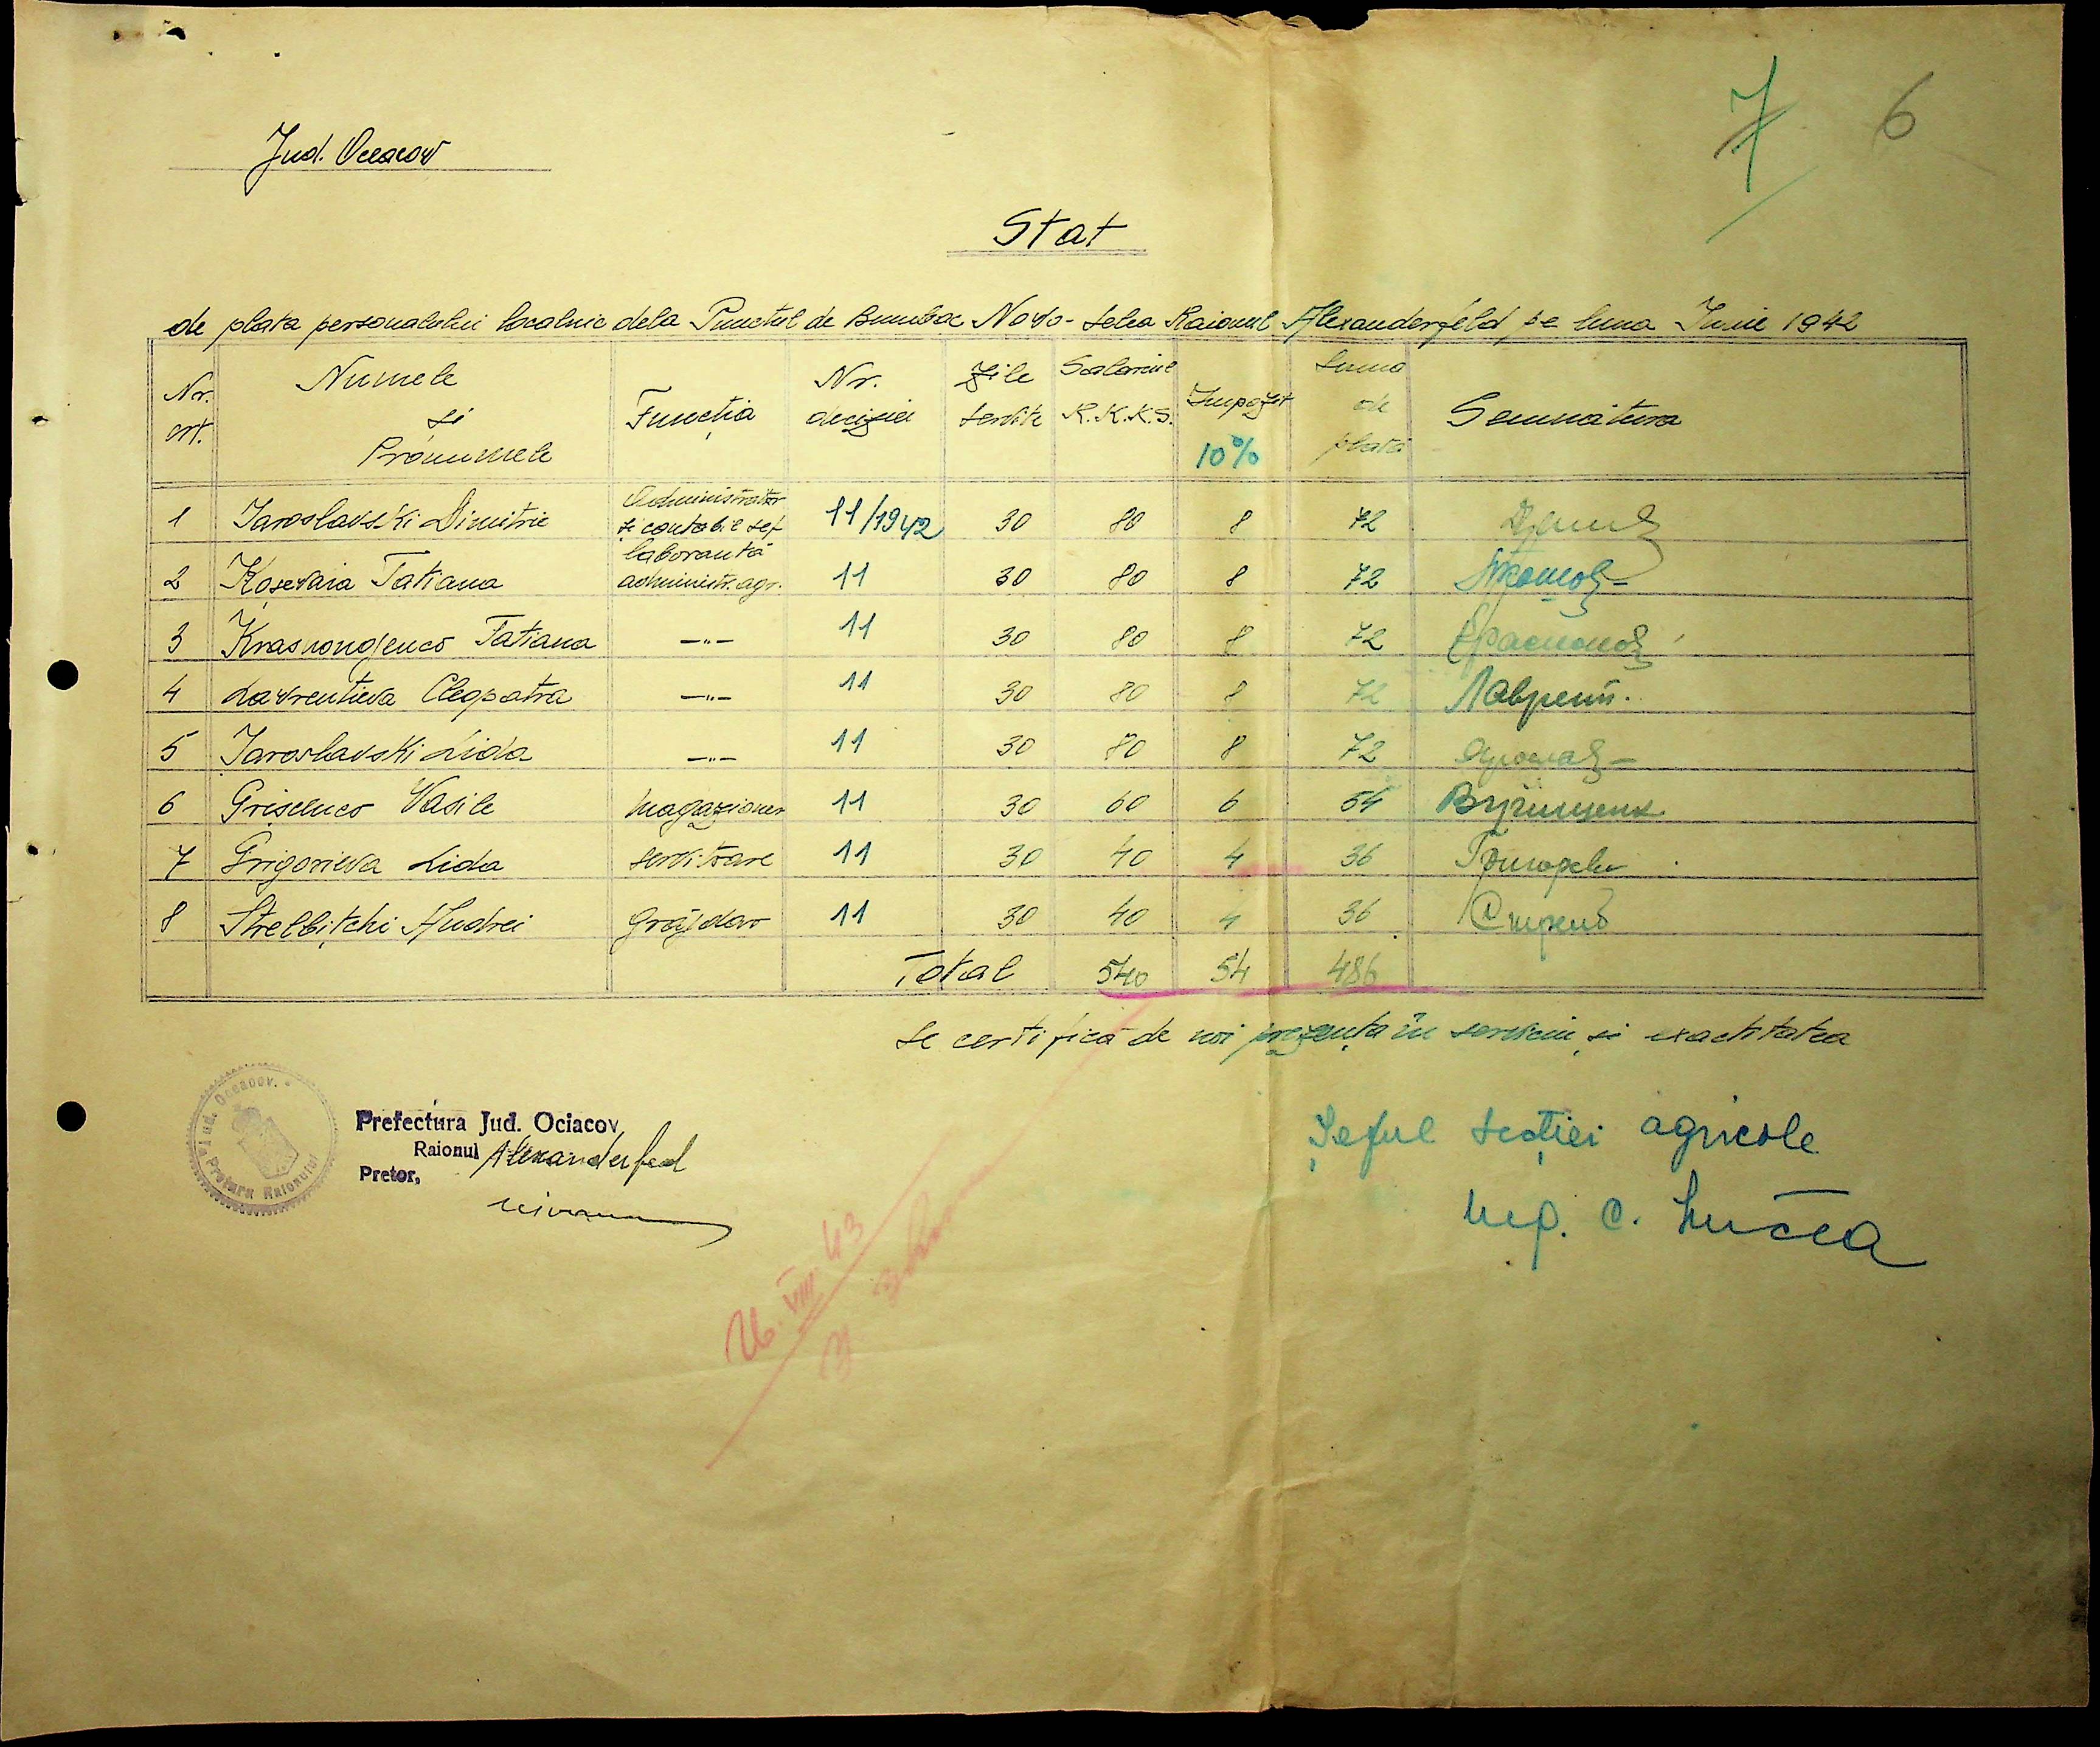 7 6
Jud. Oceacov
Stat
de plata personalului localnic dela Punctul de Bumbac Novo-Selca Raionul Alexanderfeld pe luna Iunie 1942
Nr. crt. Numele și Pronumele Funcția Nr. deciziei Zile servite Salariul R.K.K.S. Impozit 10% Suma de plată Semnătura
1 Iaroslavski Dimitrie Administrator și contabil șef 11/1942 30 80 8 72
2 Kosevaia Tatiana laborantă administr. agr. 11 30 80 8 72
3 Krasnondenco Tatiana —"— 11 30 80 8 72
4 Lavrentieva Cleopatra —"— 11 30 80 8 72 Лаврент.
5 Iaroslavski Lida —"— 11 30 80 8 72
6 Grisenco Vasile magazioner 11 30 60 6 54
7 Grigorieva Lida servitoare 11 30 40 4 36
8 Strelbițchi Andrei grăjdar 11 30 40 4 36
Total 540 54 486
se certifică de noi prezența în serviciu și exactitatea
Prefectura Jud. Ociacov
Raionul Alexanderfeld
Pretor,
Șeful secției agricole
Ing. C.
26.VIII.43